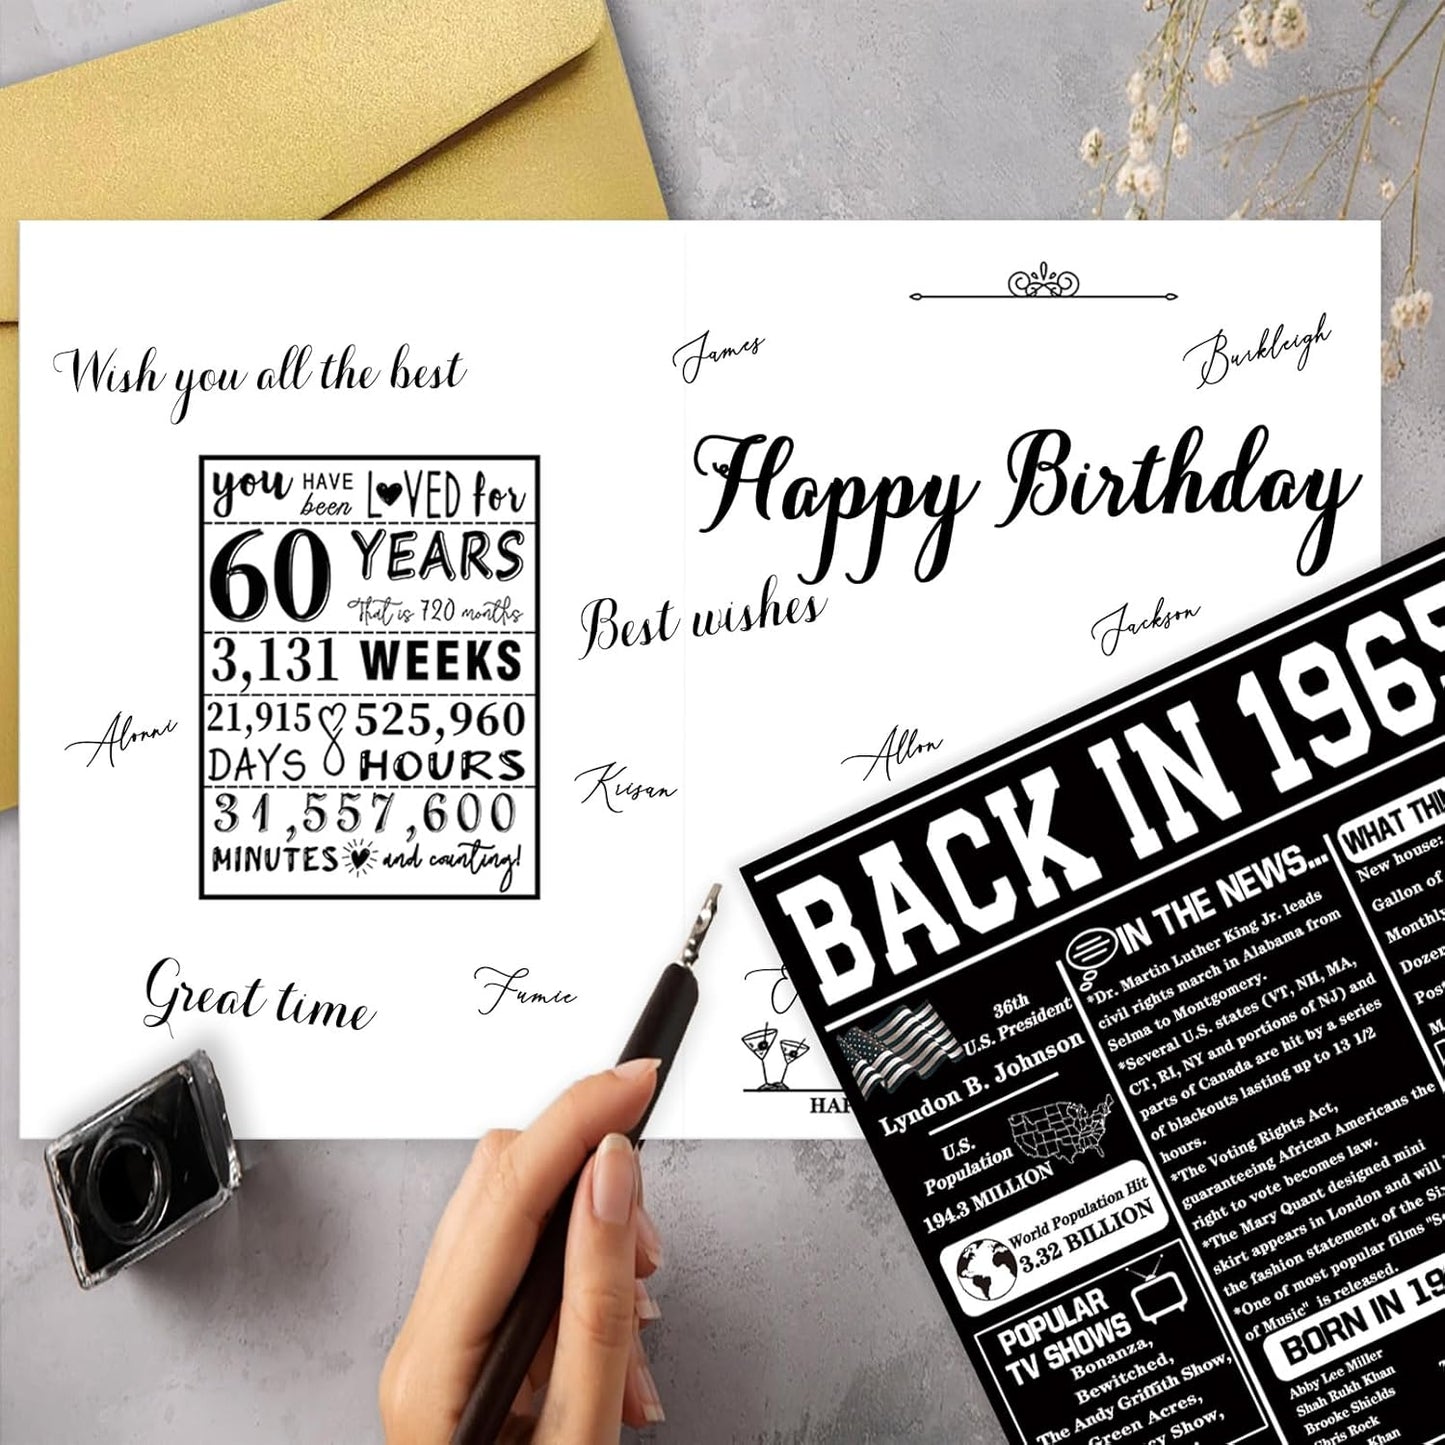 Wish you all the best
you HAVE been LOVED for
60 YEARS
That is 720 months
3,131 WEEKS
21,915 DAYS
525,960 HOURS
31,557,600
MINUTES and counting!
Alonni
Great time
Fumie
James
Burkleigh
Happy Birthday
Best wishes
Jackson
Allon
Krisan
HA
BACK IN 1965
36th
U.S. President
Lyndon B. Johnson
U.S.
Population
194.3 MILLION
World Population Hit
3.32 BILLION
POPULAR
TV SHOWS
Bonanza,
Bewitched,
The Andy Griffith Show,
Green Acres,
Show,
IN THE NEWS...
*Dr. Martin Luther King Jr. leads
civil rights march in Alabama from
Selma to Montgomery.
*Several U.S. states (VT, NH, MA,
CT, RI, NY and portions of NJ) and
parts of Canada are hit by a series
of blackouts lasting up to 13 1/2
hours.
*The Voting Rights Act,
guaranteeing African Americans the
right to vote becomes law.
*The Mary Quant designed mini
skirt appears in London and will
the fashion statement of the
*One of most popular films
of Music" is released.
BORN IN 19
Abby Lee Miller
Shah Rukh Khan
Brooke Shields
Chris Rock
Khan
WHAT
New house:
Gallon of
Monthly
Dozen